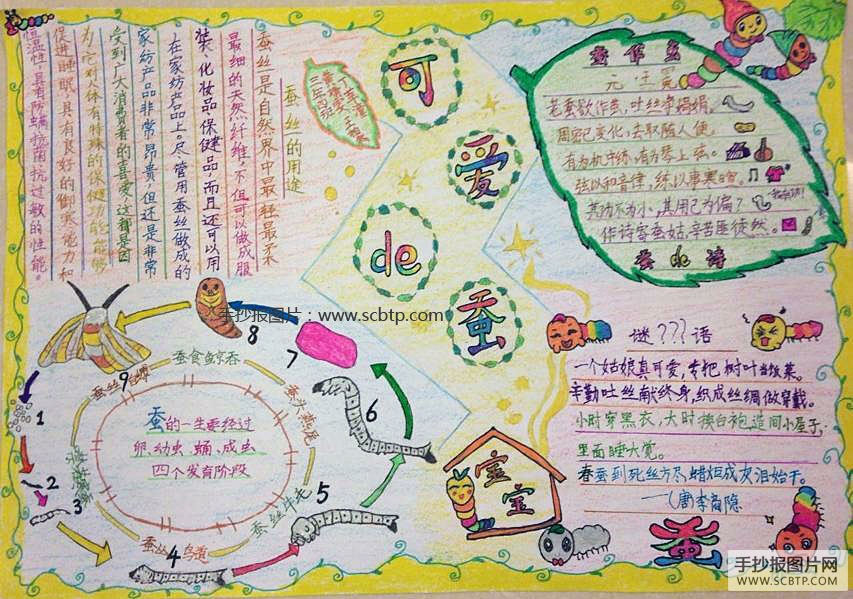 可
爱
de
蚕
宝
宝
蚕丝的用途
蚕丝是自然界中最轻最柔
最细的天然纤维，不但可以做成服
装、化妆品保健品，而且还可以用
在家纺产品上。尽管用蚕丝做成的
家纺产品非常昂贵，但还是非常
受到广大消费者的喜爱，这都是因
为它对人体有特殊的保健功能，能够
促进睡眠，具有良好的御寒能力和
恒温性，具有防螨、抗菌、抗过敏的性能。
老蚕欲作茧，吐丝
周密已变化，去取随人便。
有为机中练，有为琴上弦。
弦以和音律，练以事寒
其功不为小，其用已为偏？
作诗答蚕姑，辛苦匪徒然。
蚕de诗
谜???语
一个姑娘真可爱，专把树叶当饭菜。
辛勤吐丝献终身，织成丝绸做穿戴。
小时穿黑衣，大时换白袍，造间小屋子，
里面睡大觉。
春蚕到死丝方尽，蜡炬成灰泪始干。
——（唐李商隐
蚕
蚕的一生要经过
卵、幼虫、蛹、成虫
四个发育阶段
蚕食鲸吞
蚕丝牛毛
蚕丛鸟道
1
2
3
4
5
6
7
8
9
手抄报图片：www.scbtp.com
手抄报图片网
WWW.SCBTP.COM